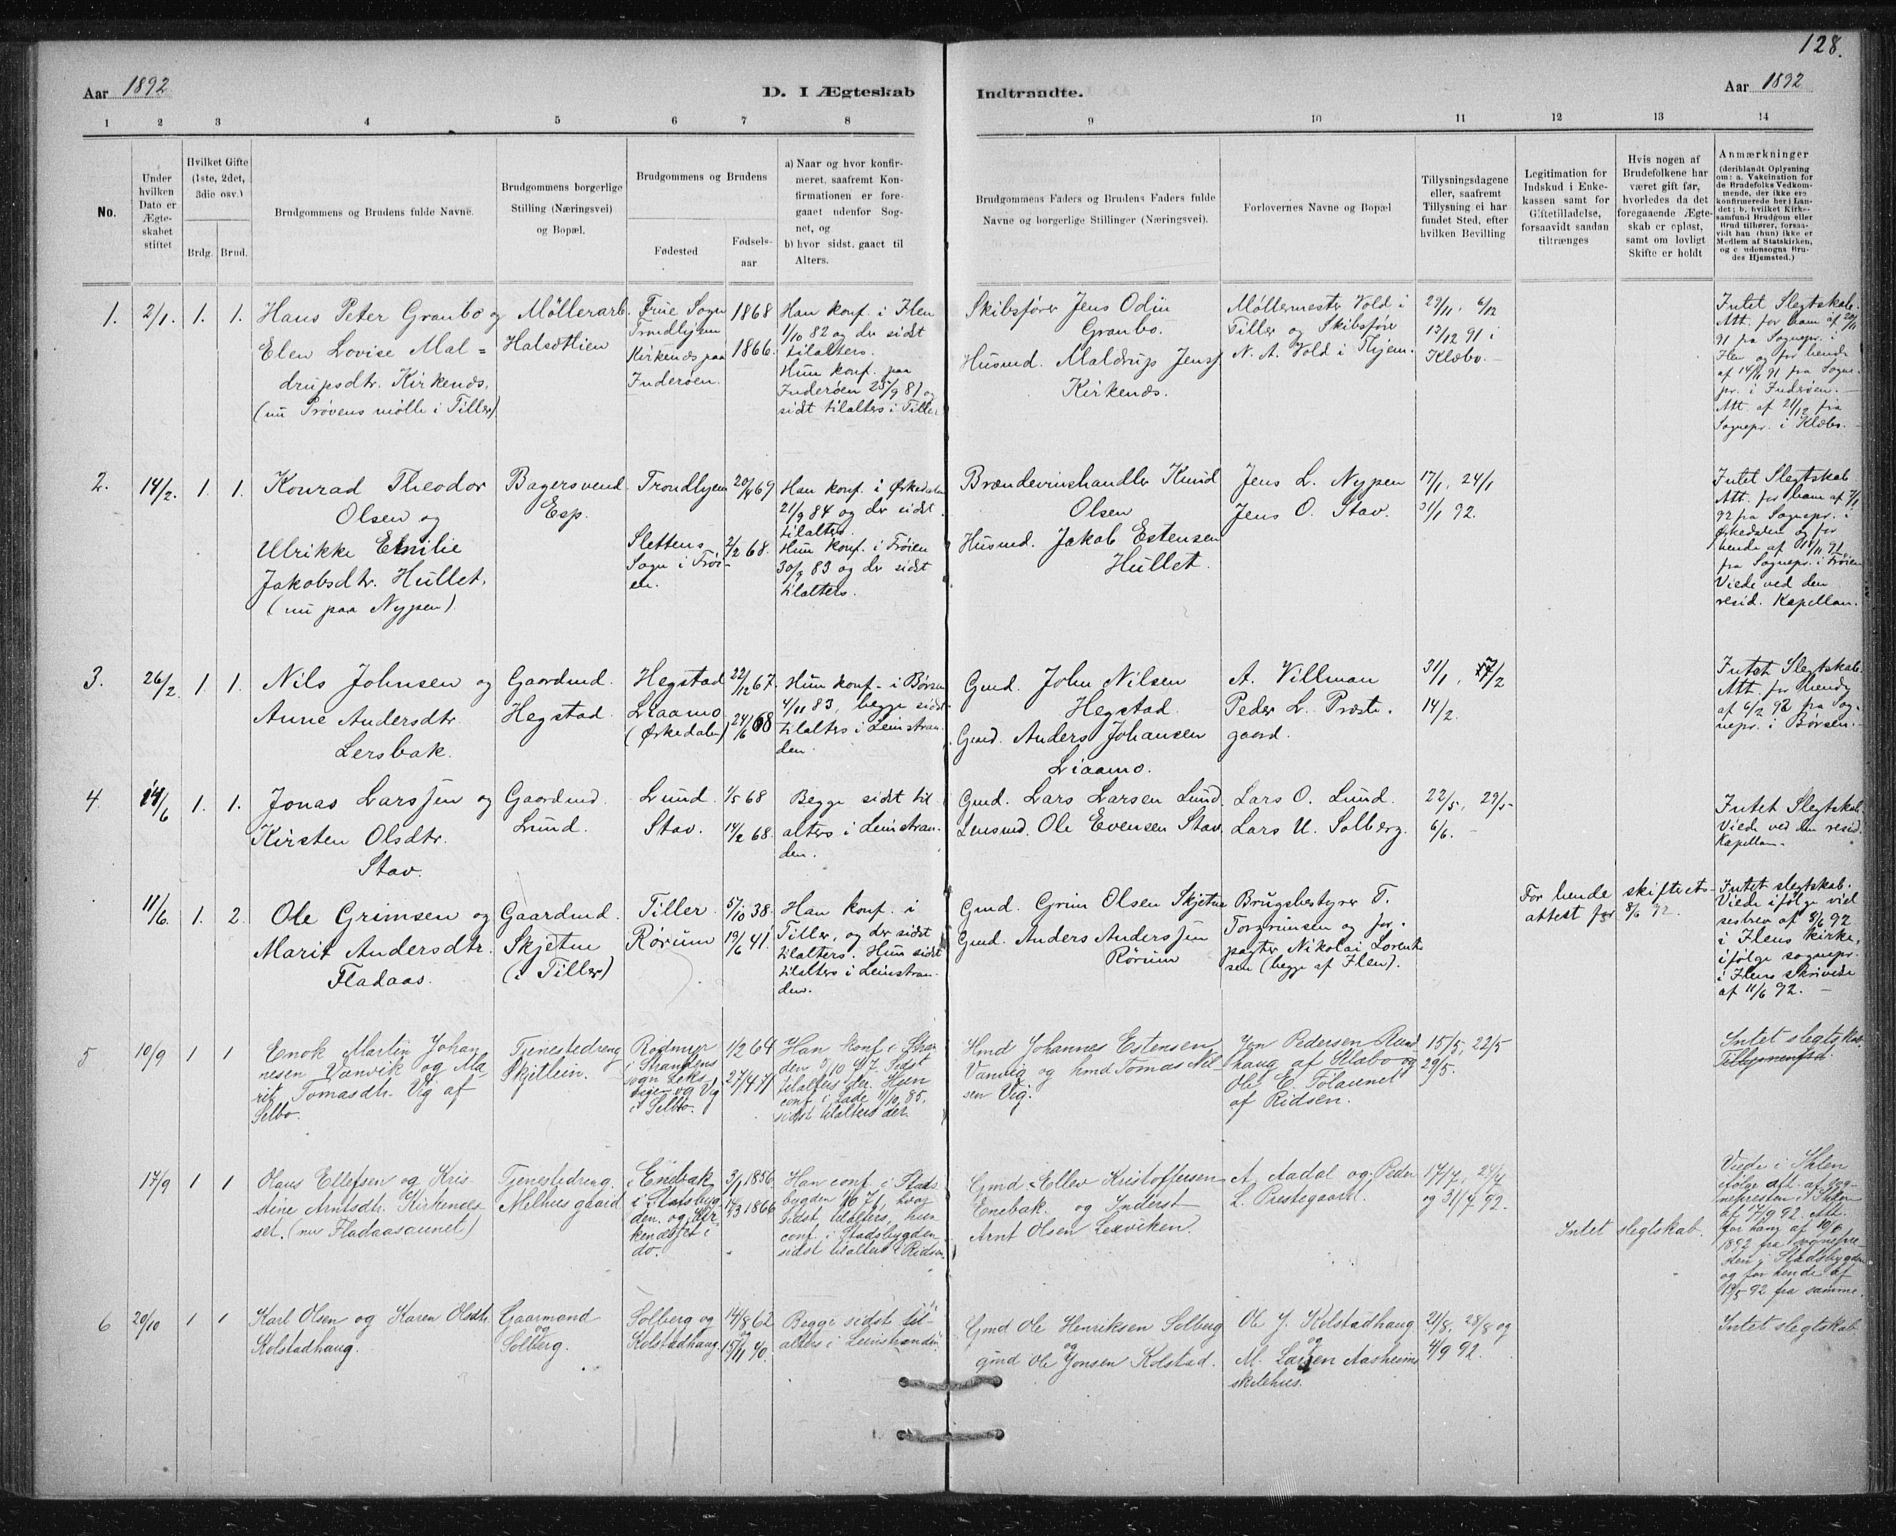 128.
Aar 1892
D. I Ægteskab
Indtraadte.
Aar 1892
1 2 3 4 5 6 7 8 9 10 11 12 13 14
No.
Under
hvilken
Dato er
Ægte-
skabet
stiftet
Hvilket Gifte
(1ste, 2det,
3die osv.)
Brdg. Brud.
Brudgommens og Brudens fulde Navne.
Brudgommens borgerlige
Stilling (Næringsvei)
og Bopæl.
Brudgommens og Brudens
Fødested
Fødsels-
aar
a) Naar og hvor konfir-
meret, saafremt Kon-
firmationen er fore-
gaaet udenfor Sog-
net, og
b) hvor sidst. gaaet til
Alters.
Brudgommens Faders og Brudens Faders fulde
Navne og borgerlige Stillinger (Næringsvei).
Forlovernes Navne og Bopæl
Tillysningsdagene
eller, saafremt
Tillysning ei har
fundet Sted, efter
hvilken Bevilling
Legitimation for
Indskud i Enke-
kassen samt for
Giftetilladelse,
forsaavidt saadan
tiltrænges
Hvis nogen af
Brudefolkene har
været gift før,
hvorledes da det
foregaaende Ægte-
skab er opløst,
samt om lovligt
Skifte er holdt
Anmærkninger
(deriblandt Oplysning
om: a. Vakcination for
de Brudefolks Vedkom-
mende, der ikke ere
konfirmerede her i Lan-
det; b. hvilket Kirke-
samfund Brudgom eller
Brud tilhører, forsaa-
vidt han (hun) ikke er
Medlem af Statskirken,
og c. udensogns Bru-
des Hjemsted.)
1. 2/1. 1. 1.
Hans Peter Granbo og
Elen Lovise Mal=
drupsdtr. Kirkenæs,
(nu Prøvens mølle i Tiller)
Møllerarb.
Halsætlien
Frue Sogn
Trondhjem
Kirkenæs paa
Inderøen.
1868
1866.
Han konf. i Ilen
1/10 82 og der sidst
tilalters.
Hun konf. paa
Inderøen 25/9 81 og
sidst tilalters i Tiller.
Skibsfører Jens Odin
Granbo.
Husmd. Maldrup Jens
Kirkenæs.
Møllemester Vold i
Tiller og Skibsfører
N. A. Vold i Thjem.
29/11, 6/12
13/12 91 i
Klæbo.
Intet Slegtskab.
Att. for ham af 20/11
91 fra Sognepr. i
Ilen og for hende
af 14/11 91 fra Sogne-
pr. i Inderøen.
Att. af 21/12 fra
Sognepr. i Klæbo.
2. 14/2. 1. 1.
Konrad Theodor
Olsen og
Ulrikke Emilie
Jakobsdtr. Hullet,
(nu paa Nypen).
Bagersvend
Esp.
Trondhjem
Slettens
Sogn i Frøi-
en.
20/4 69
2/2 68.
Han konf. i Ørkedalen
21/9 84 og der sidst
tilalters.
Hun konf. i Frøien
30/9 83 og der sidst
tilalters.
Brændevinshandler Knud
Olsen
Husmd. Jakob Estensen
Hullet.
Jens L. Nypen
Jens O. Stav.
17/1, 24/1
31/1 92.
Intet Slegtskab
Att. for ham af 7/1
92 fra Sognepr. i
Ørkedalen og for
hende af 18/11 92
fra Sognepr. i Frøien
Viede ved den
resid. Kapellan.
3. 26/2 1. 1.
Nils Johnsen og
Anne Andersdtr.
Lersbak.
Gaardmd.
Hegstad.
Hegstad
Liaamo
(Ørkedalen)
22/12 67.
24/6 68
Hun konf. i Børsen
4/11 83, begge sidst
tilalters i Leinstran-
den.
Gmd. John Nilsen
Hegstad.
Gmd. Anders Johansen
Liaamo.
A. Villman
Peder L. Præste-
gaard.
31/1, 7/2
14/2.
Intet Slegtskab
Att. for hende
af 6/2 92 fra Sog-
nepr. i Børsen.
4. 14/6 1. 1.
Jonas Larssen og
Kirsten Olsdtr.
Stav.
Gaardmd.
Lund.
Lund
Stav.
1/5 68
14/2 68.
Begge sidst til
alters i Leinstran-
den.
Gmd. Lars Larsen Lund
Lensmd. Ole Evensen Stav.
Lars O. Lund.
Lars U. Solberg.
22/5, 29/5
6/6.
Intet Slegtskab
Viede ved den resid.
Kapellan.
11/6. 1. 2.
Ole Grimsen og
Marit Andersdtr.
Fladaas.
Gaardmd.
Skjetne
(i Tiller)
Tiller.
Rørum
5/10 38.
19/6 41.
Han konf. i
Tiller, og der sidst
tilalters. Hun sidst
tilalters i Leinstran-
den.
Gmd. Grim Olsen Skjetne
Gmd. Anders Anderssen
Rørum
Brugsbestyrer T.
Torgrimsen og for-
pagter Nikolai Lorent-
sen (begge af Ilen).
For hende skifteat-
attest for 8/6 92.
Intet slegtskab.
Viede ifølge vid
sesbrev af 8/6 92
i Ilens kirke,
ifølge sognepr.
i Ilens Skrivelse
af 11/6 92.
5 10/9 1 1
Enok Martin Johan
nesen Vanvik og Ma-
rit Tomasdtr. Vig af
Selbo.
Tjenestedreng
Skjetlein.
Rødmyr
i Strandens
sogn Leks-
vigen og Vig
i Selbo.
1/2 64
27/4 71
Han konf i Stran
den 7/10 47. Sidst
tilalters der. Hun
conf. i Lade 11/10 85.
sidst tilalters der.
Hmd Johannes Estensen
Vanvig og hmd Tomas Nil
sen Vig.
Jon Pedersen Rund
haug af Klæbo og
Ole E. Tolaunet
af Ridsen.
15/5, 22/5
29/5.
Intet slegtskab.
17/9 1 1
Olaus Ellefsen og Kris
tine Arntsdt. Kirkenes-
set. (nu Fladaasaunet)
Tjenestedreng.
Melhus gaard
Enebak
i Stadsbyg
den, og Kir
kenesset i
do.
3/1 1856
1866
Han conf. i Stads
bygden 1/10 71, hvor
sidst tilalters, hun
conf. i Stadsbygden
sidst tilalters i Ridsen
Gmd Ellev Kristoffersen
Enebak og Inderst
Arnt Olsen Lexviken.
A. Aadal og Peder
L. Prestegaard.
17/7, 24/7
og 31/7 92.
Intet slegtskab.
Viede i Ihlen
ifølge att. af sog-
nepresten i Ihlen
af 17/9 92. Att.
for ham af 10/6
1892 fra sognepre-
sten i Stadsbygden
og for hende af
19/5 92 fra samme.
6 20/10 1 1
Karl Olsen og Karen Olsdtr.
Kolstadhaug.
Gaarmand
og
Solberg.
Solberg og
Kolstadhaug.
14/8 62
og
15/11 70.
Begge sidst til-
alters i Leinstranden.
Gmd Ole Henriksen Solberg
og
gmd Ole Jonsen Kolstad.
Ole J. Kolstadhaug
og
M. Larsen Aasheim
skolehus.
21/8, 28/8 og
4/9 92.
Intet slegtskab